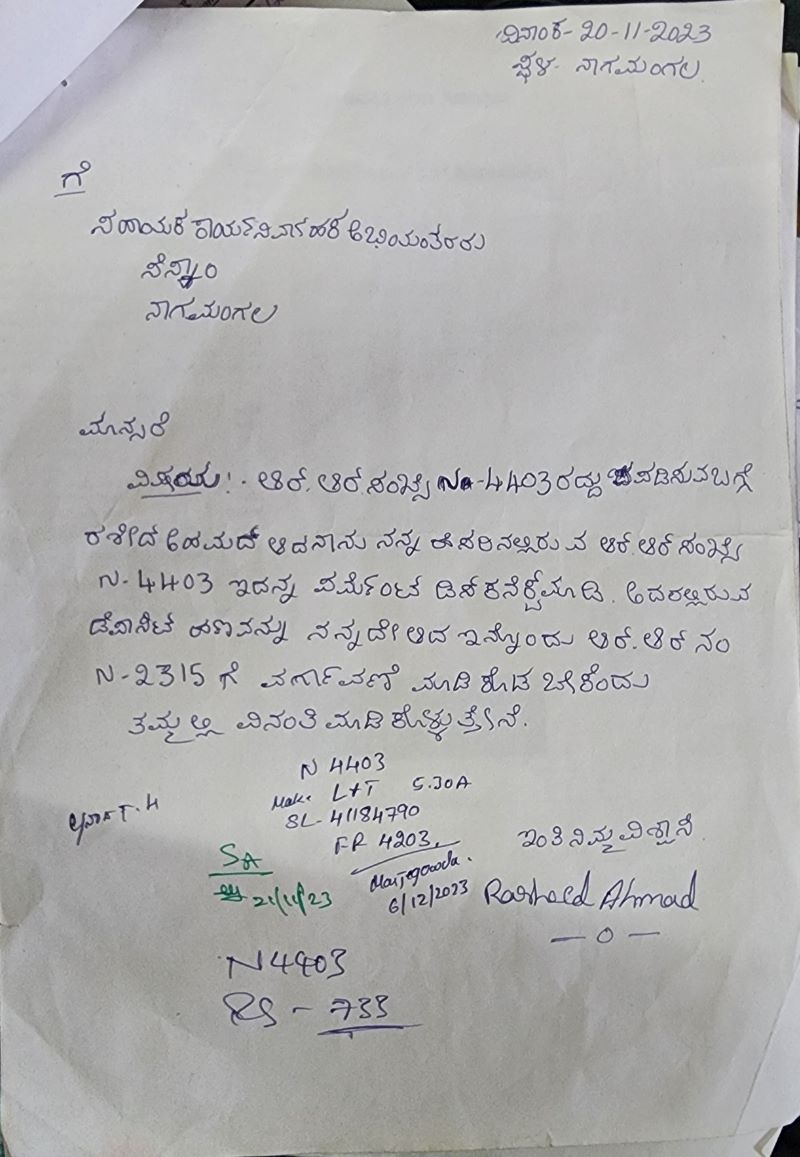 ದಿನಾಂಕ- 20-11-2023
ಸ್ಥಳ- ನಾಗಮಂಗಲ.
ಗೆ
ಸಹಾಯಕ ಕಾರ್ಯನಿರ್ವಾಹಕ ಅಭಿಯಂತರರು
ಸೆಸ್ಕಾಂ
ನಾಗಮಂಗಲ
ಮಾನ್ಯರೆ
ವಿಷಯ:- ಆರ್.ಆರ್ ಸಂಖ್ಯೆ N-4403 ರದ್ದು ಪಡಿಸುವ ಬಗ್ಗೆ
ರಶೀದ್ ಅಹಮದ್ ಆದ ನಾನು ನನ್ನ ಹೆಸರಿನಲ್ಲಿರುವ ಆರ್.ಆರ್ ಸಂಖ್ಯೆ
N-4403 ಇದನ್ನ ಪರ್ಮೆಂಟ್ ಡಿಸ್ಕನೆಕ್ಟ್ ಮಾಡಿ. ಅದರಲ್ಲಿರುವ
ಡೆಪಾಸಿಟ್ ಹಣವನ್ನು ನನ್ನದೇ ಆದ ಇನ್ನೊಂದು ಆರ್.ಆರ್ ನಂ
N-2315 ಗೆ ವರ್ಗಾವಣೆ ಮಾಡಿ ಕೊಡ ಬೇಕೆಂದು
ತಮ್ಮಲ್ಲಿ ವಿನಂತಿ ಮಾಡಿ ಕೊಳ್ಳುತ್ತೇನೆ.
N 4403
Make L&T 5.30A
SL- 41184790
FR 4203.
ಇಂತಿ ನಿಮ್ಮ ವಿಶ್ವಾಸಿ.
SA
21/11/23
Manjegowda.
6/12/2023
Rasheed Ahmad
—0—
N4403
RS - 733